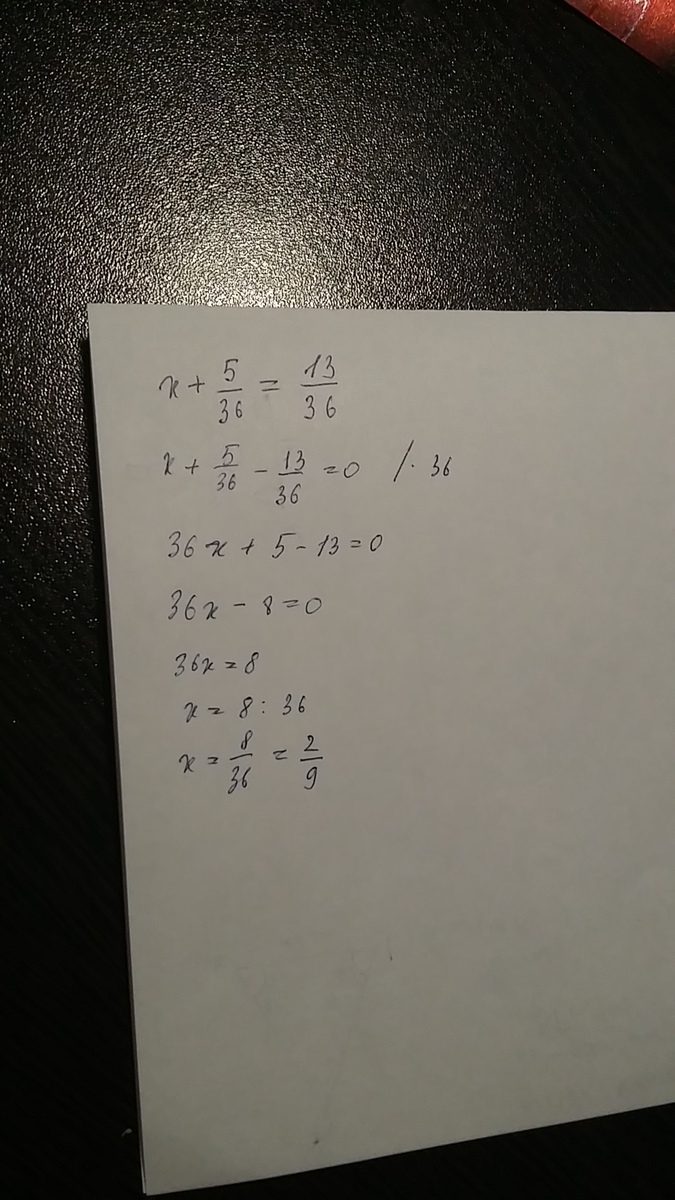 x + 5/36 = 13/36
x + 5/36 - 13/36 = 0 /· 36
36x + 5 - 13 = 0
36x - 8 = 0
36x = 8
x = 8 : 36
x = 8/36 = 2/9